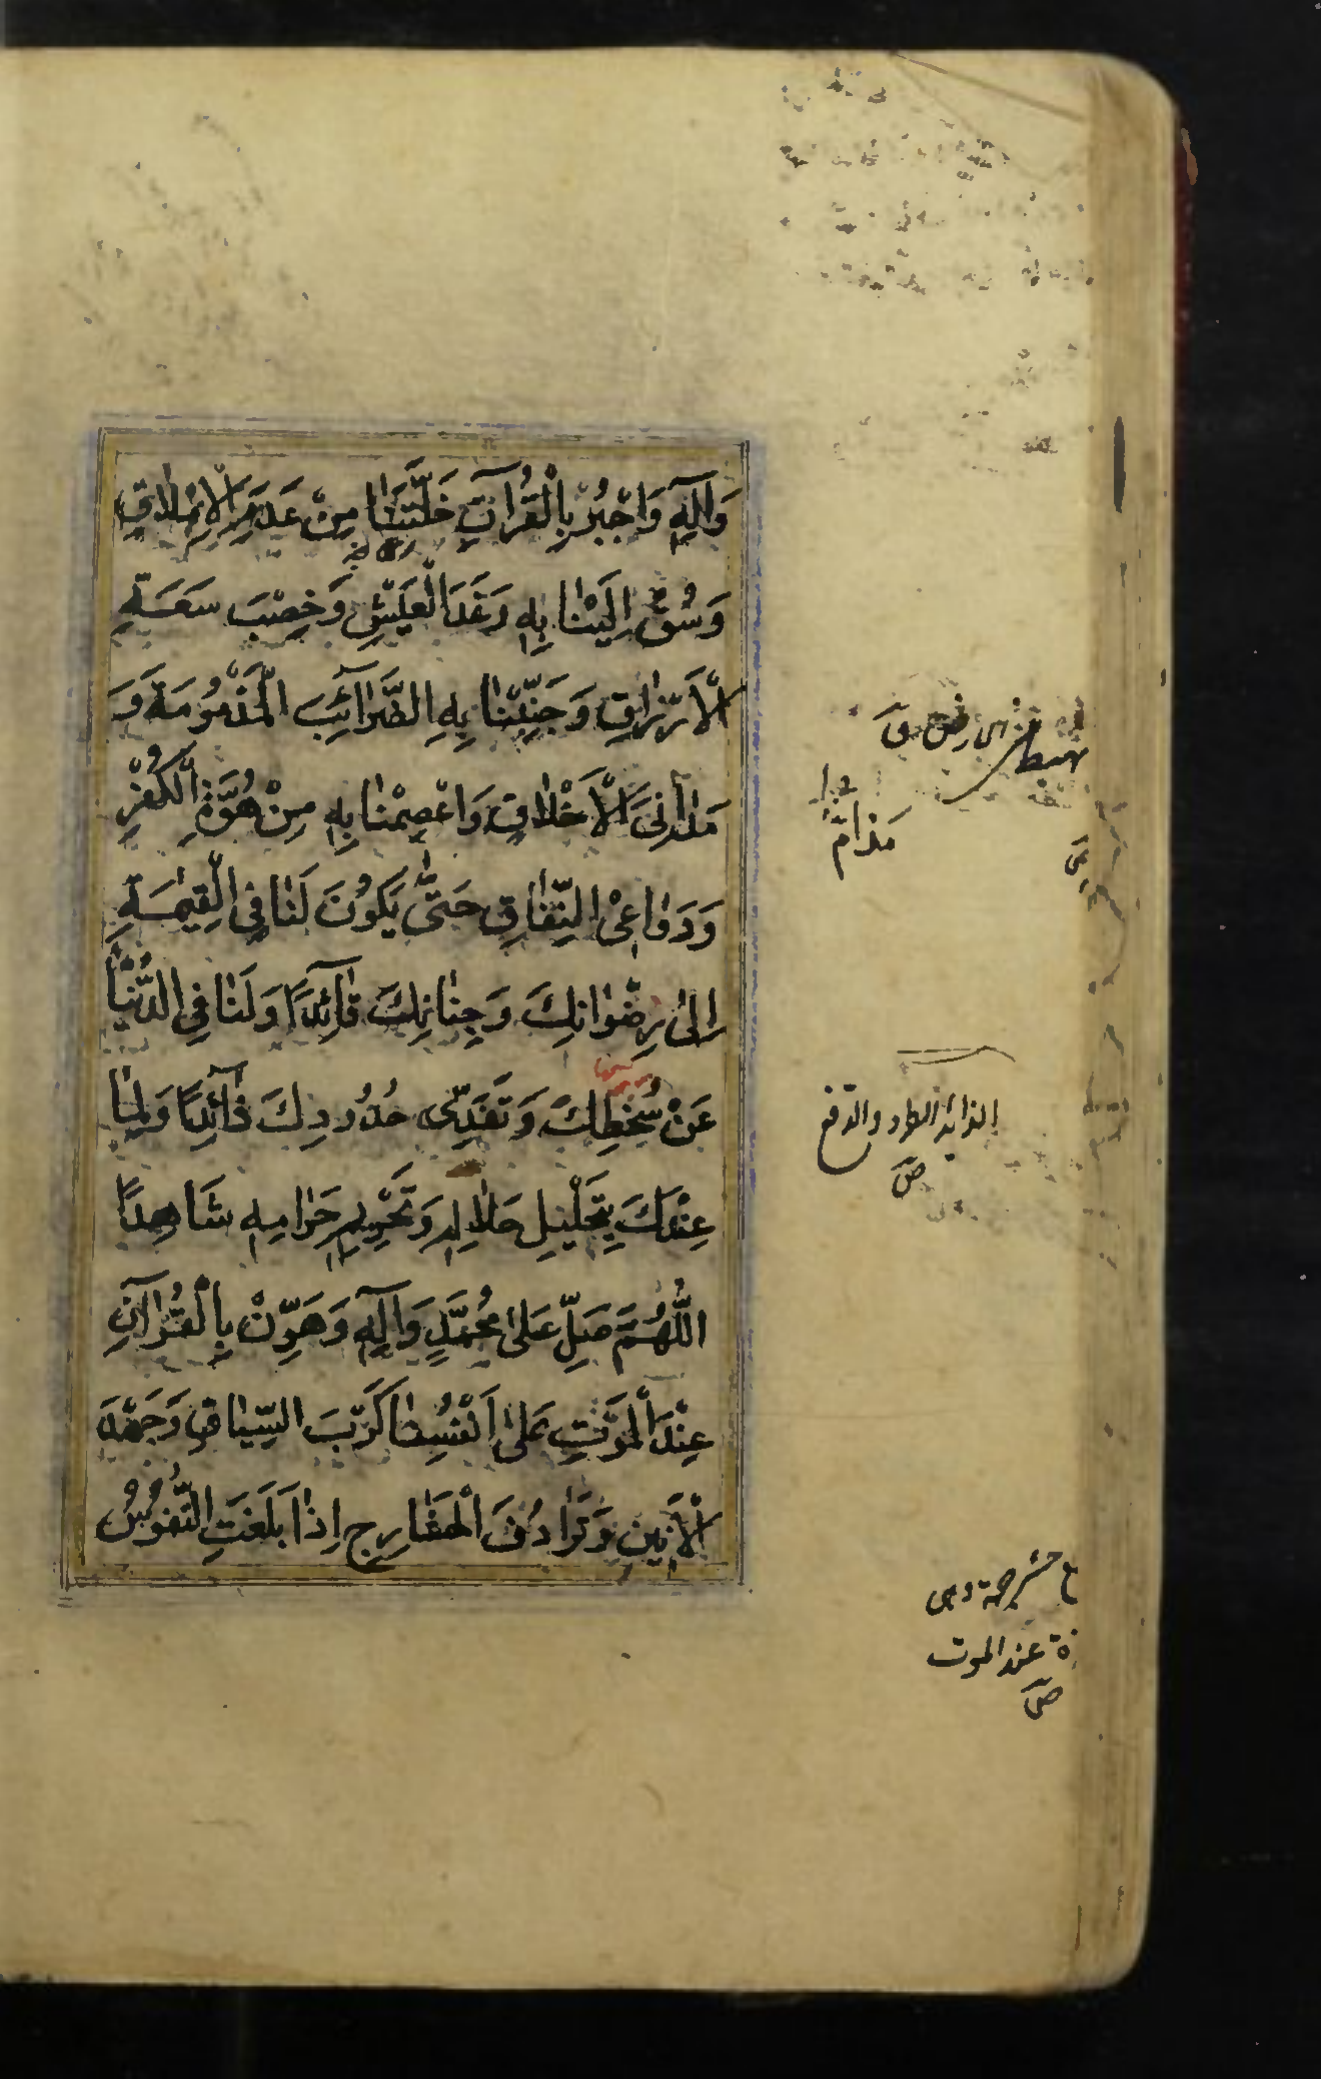 وَآلِهِ وَاجْبُرْ بِالْقُرْآنِ خَلَّتَنَا مِنْ عَدَمِ الْاِمْلَاقِ
وَسُقْ اِلَيْنَا بِهِ رَغَدَ الْعَيْشِ وَخِصْبَ سَعَةِ
الْاَرْزَاقِ وَجَنِّبْنَا بِهِ الضَّرَائِبَ الْمَذْمُومَةَ وَ
مَدَانِیَ الْاَخْلَاقِ وَاعْصِمْنَا بِهِ مِنْ هُوَّةِ الْكُفْرِ
وَدَوَاعِی النِّفَاقِ حَتّٰى يَكُونَ لَنَا فِی الْقِيٰمَةِ
اِلىٰ رِضْوَانِكَ وَجِنَانِكَ قَائِدًا وَلَنَا فِی الدُّنْيَا
عَنْ سُخْطِكَ وَتَعَدِّی حُدُودِكَ ذَائِدًا وَلِمَا
عِنْدَكَ بِتَحْلِيلِ حَلَالِهِ وَتَحْرِيمِ حَرَامِهِ شَاهِدًا
اَللّٰهُمَّ صَلِّ عَلىٰ مُحَمَّدٍ وَآلِهِ وَهَوِّنْ بِالْقُرْآنِ
عِنْدَ الْمَوْتِ عَلىٰ اَنْفُسِنَا كَرْبَ السِّيَاقِ وَجَهْدَ
الْاَنِينِ وَتَرَادُفَ الْحَشَارِجِ اِذَا بَلَغَتِ النُّفُوسُ
مذامّ
الذائد الطارد والدافع
ص
حشرجة وهی
عند الموت
ص